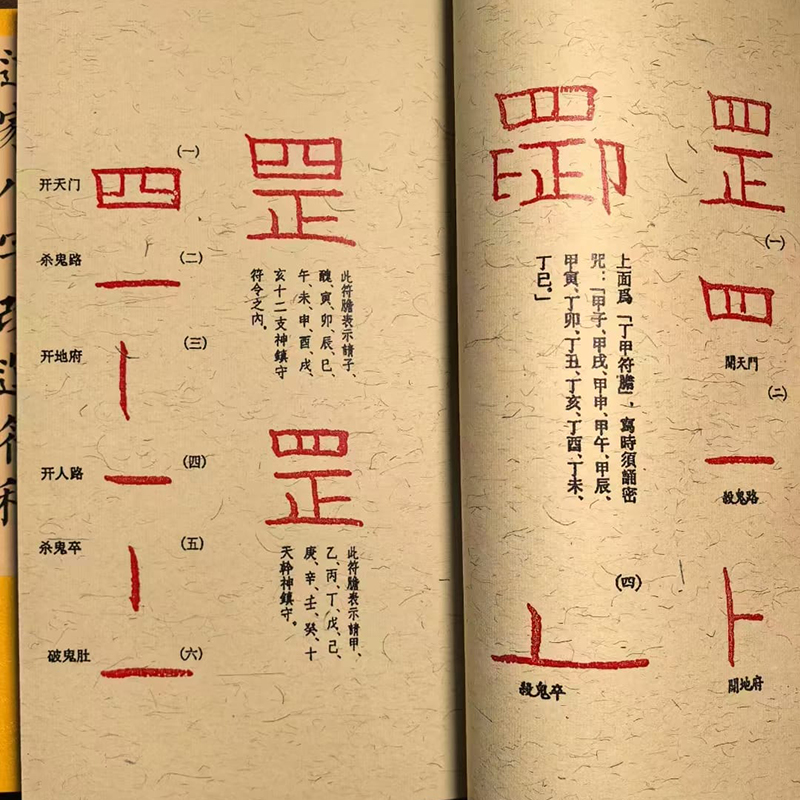 道家八字改造符
罡
(一)
开天门
四
(二)
杀鬼路
一
(三)
开地府
丨
(四)
开人路
一
(五)
杀鬼卒
丨
(六)
破鬼肚
一
此符膽表示請子、
醜、寅、卯、辰、巳、
午、未、申、酉、戌、
亥十二支神鎮守
符令之內。
罡
此符膽表示請甲、
乙、丙、丁、戊、己、
庚、辛、壬、癸、十
天幹神鎮守。
罡
(一)
四
開天門
(二)
一
殺鬼路
⺊
開地府
上面爲「丁甲符膽」，寫時須誦密
咒：「甲子、甲戌、甲申、甲午、甲辰、
甲寅、丁卯、丁丑、丁亥、丁酉、丁未、
丁巳。」
(四)
殺鬼卒